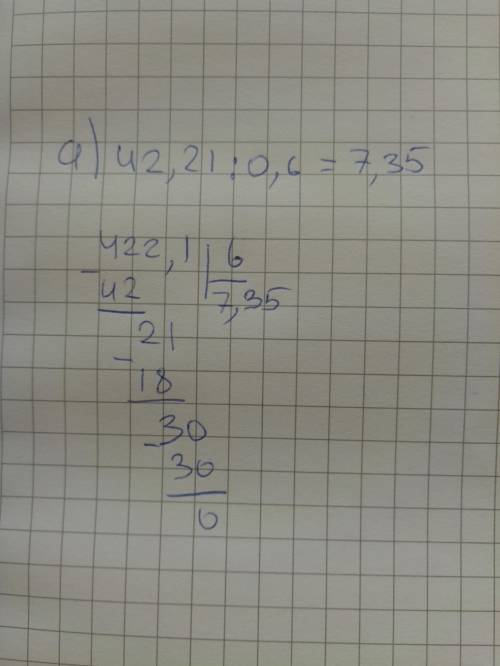 а) 42,21:0,6=7,35
422,1 6
- 42 7,35
21
- 18
30
- 30
0